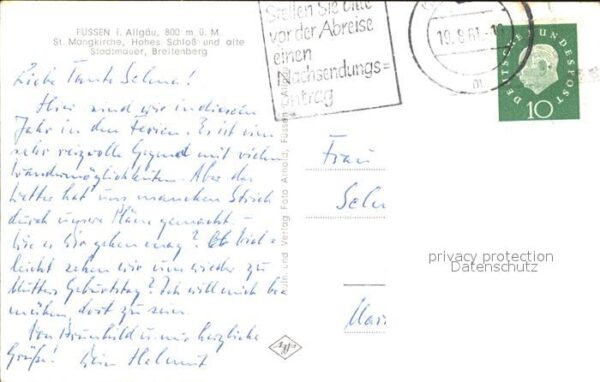 FÜSSEN i. Allgäu, 800 m ü. M.
St. Mangkirche, Hohes Schloß und alte
Stadtmauer, Breitenberg
Liebe Tante Selma!
Hier sind wir in diesem
Jahr in den Ferien. Es ist eine
sehr reizvolle Gegend mit vielen
Wandermöglichkeiten. Aber das
Wetter hat uns manchen Strich
durch unsere Pläne gemacht. –
Wie es Dir gehen mag? Ob viel=
leicht sehen wir uns wieder zu
Mutters Geburtstag? Ich will mich be
mühen, dort zu sein.
Von Brunhild u. mir herzliche
Grüße! Dein Helmut
Aufn. und Verlag Foto Arnold, Füssen i. Allgäu
Agfa
Stellen Sie bitte
vor der Abreise
einen
Nachsendungs=
antrag
19.9.61.-18
m
DEUTSCHE BUNDESPOST
10
Frau
Selm
Mari
privacy protection
Datenschutz